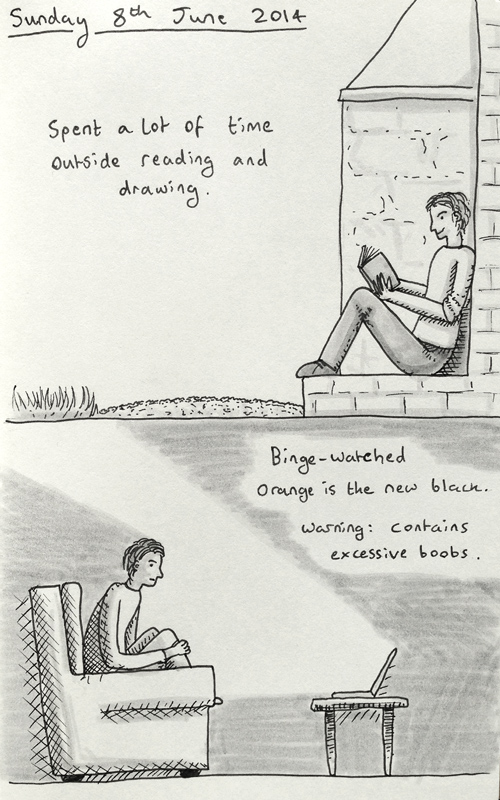 Sunday 8th June 2014
Spent a lot of time
outside reading and
drawing.
Binge-watched
Orange is the new black.
Warning: contains
excessive boobs.